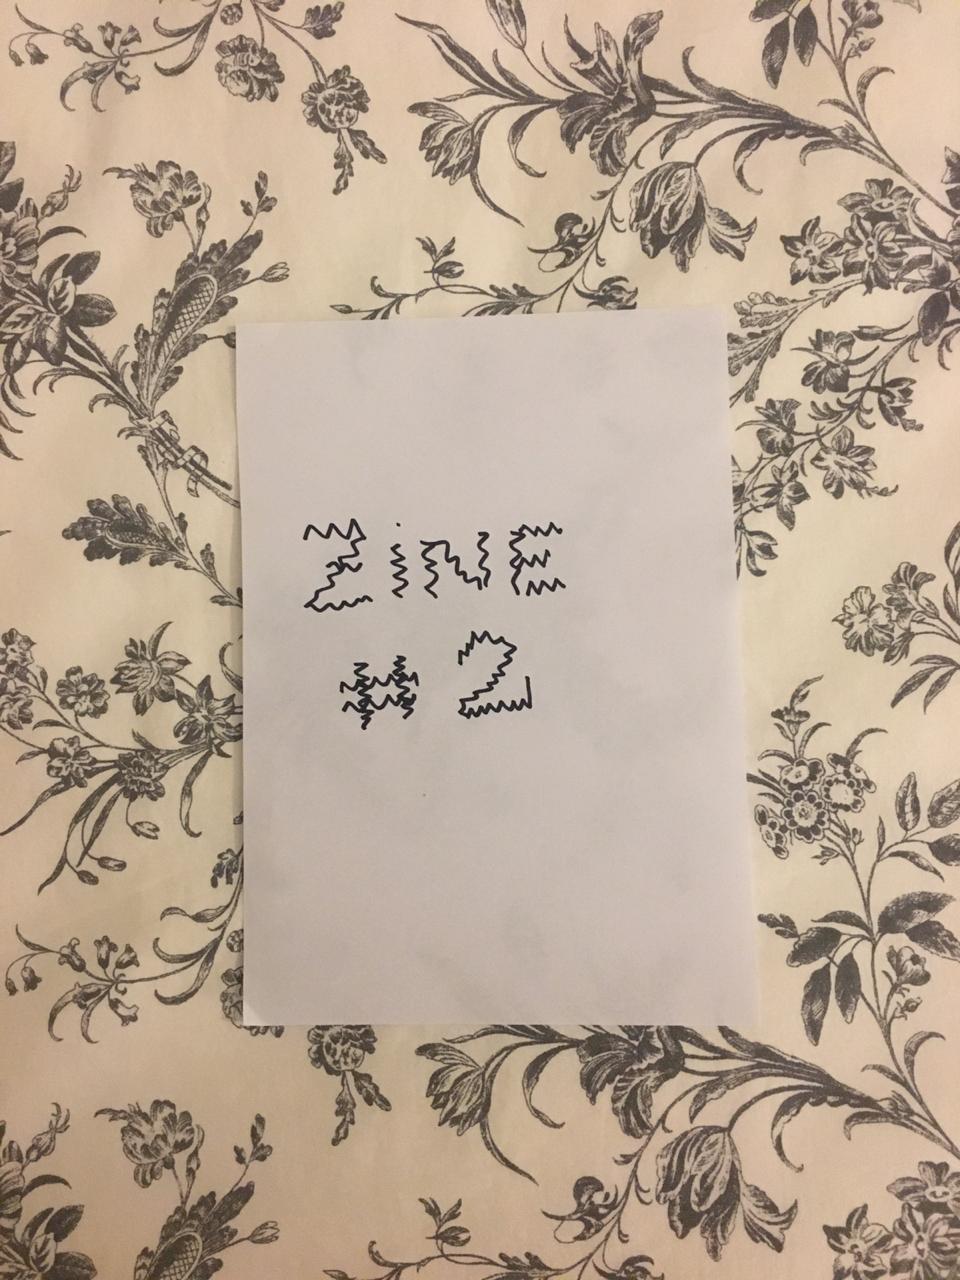 ZiNE
#2